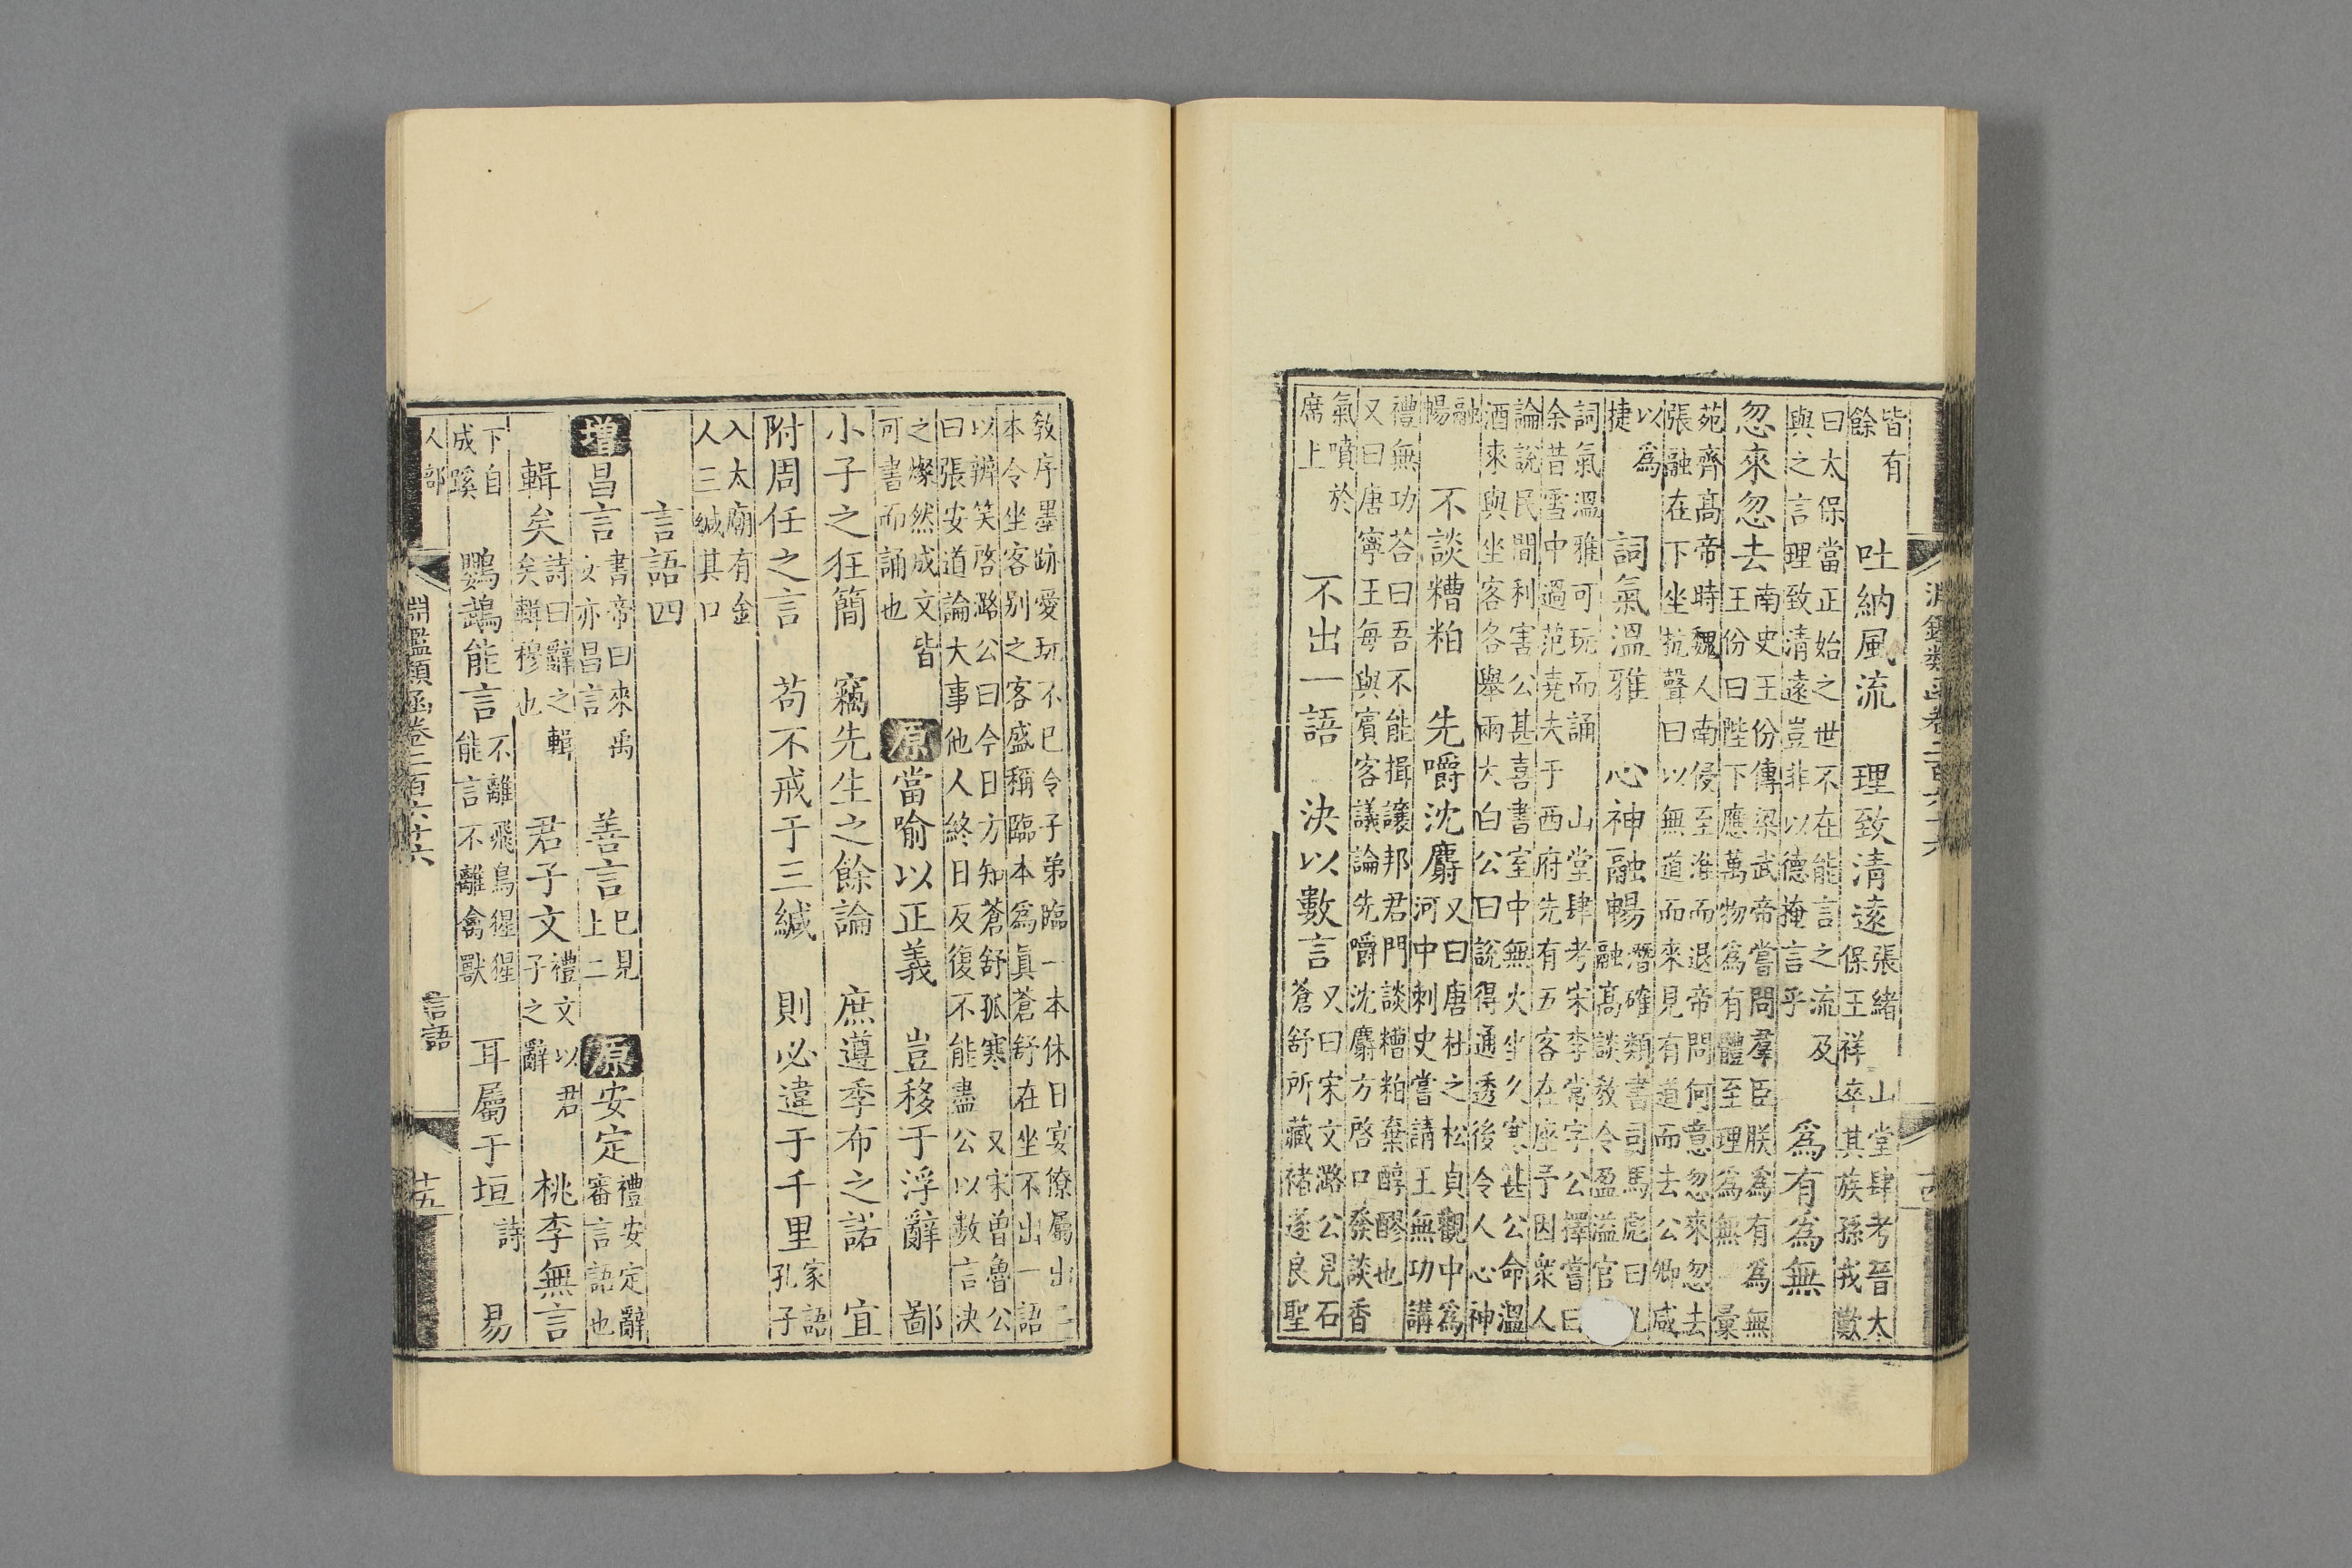 淵鑑類函卷二百六十六 十四
皆有
餘
吐納風流 理致清遠
張緒 山堂肆考晉太
保王祥卒其族孫戎歎
曰太保當正始之世不在能言之流及
與之言理致清遠豈非以德掩言乎
爲有爲無
忽來忽去
南史王份傳梁武帝嘗問羣臣朕爲有爲無
王份曰陛下應萬物爲有體至理爲無 彙
苑齊髙帝時魏人南侵至淮而退帝問何意忽來忽去
張融在下坐抗聲曰以無道而來見有道而去公卿咸
以爲
捷
詞氣溫雅 心神融暢
潛確類書司馬彪曰孔
融髙談敎令盈溢官
詞氣溫雅可玩而誦 山堂肆考宋李常字公擇嘗曰
余昔雪中過范堯夫于西府先有五客在座予因衆人
論說民間利害公甚喜書室中無火坐久寒甚公命溫
酒來與坐客各舉兩大白公曰說得通透後令人心神
融
暢
不談糟粕 先嚼沈麝
又曰唐杜之松貞觀中爲
河中刺史嘗請王無功講
禮無功荅曰吾不能揖讓邦君門談糟粕棄醇醪也
又曰唐寧王每與賓客議論先嚼沈麝方啓口發談香
氣噴於
席上
不出一語 決以數言
又曰宋文潞公見石
蒼舒所藏禇遂良聖
敎序墨跡愛玩不已令子弟臨一本休日宴僚屬出二
本令坐客别之客盛稱臨本爲眞蒼舒在坐不出一語
以辨笑啓潞公曰今日方知蒼舒孤寒 又宋曾魯公
曰張安道論大事他人終日反復不能盡公以數言決
之燦然成文皆
可書而誦也
原 當喻以正義 豈移于浮辭 鄙
小子之狂簡 竊先生之餘論 庶遵季布之諾 宜
附周任之言 苟不戒于三緘 則必違于千里
家語
孔子
入太廟有金
人三緘其口
言語四
增 昌言
書帝曰來禹
汝亦昌言
善言
已見
上二
原 安定
禮安定辭
審言語也
輯矣
詩曰辭之輯
矣輯穆也
君子文
禮文以君
子之辭
桃李無言
下自
成蹊
鸚鵡能言
不離飛鳥猩猩
能言不離禽獸
耳屬于垣
詩
易
人部
淵鑑類函卷二百六十六 言語 十五